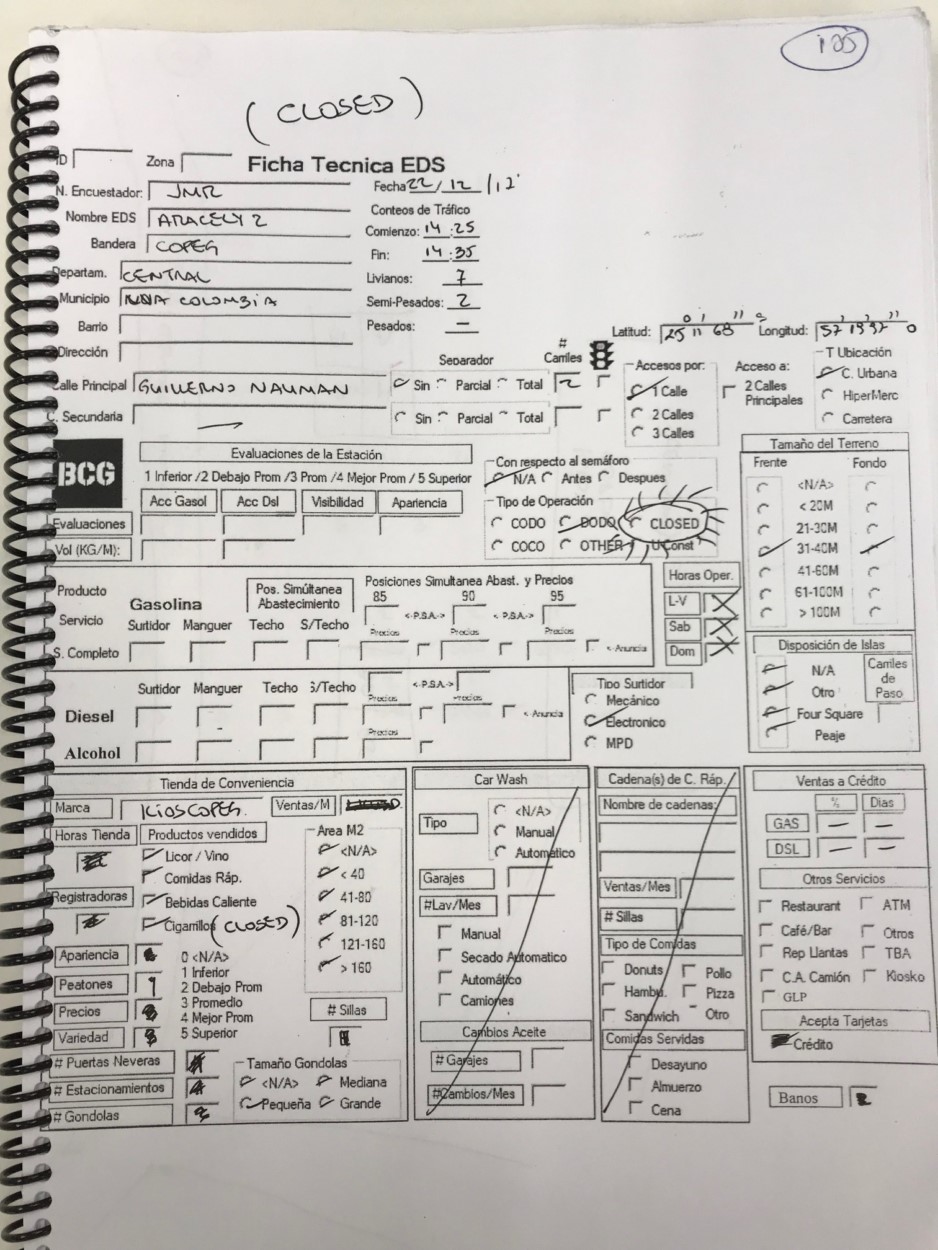 125
(CLOSED)
ID Zona Ficha Tecnica EDS
N. Encuestador: JMR Fecha 22/12/12
Nombre EDS ARACELY 2 Conteos de Tráfico
Bandera COPEG Comienzo: 14:25
Fin: 14:35
Departam. CENTRAL Livianos: 7
Municipio COLOMBIA Semi-Pesados: 2
Barrio Pesados: —
Latitud: 25 11 68 Longitud: 57 0
Dirección
Separador # Carriles
Accesos por: Acceso a: T Ubicación
Calle Principal GUILLERMO NAUMAN Sin Parcial Total 2
1 Calle 2 Calles Principales C. Urbana
C. Secundaria — Sin Parcial Total
2 Calles HiperMerc
3 Calles Carretera
BCG
Evaluaciones de la Estación
1 Inferior /2 Debajo Prom /3 Prom /4 Mejor Prom / 5 Superior
Acc Gasol Acc Dsl Visibilidad Apariencia
Evaluaciones
Vol (KG/M):
Con respecto al semáforo
N/A Antes Despues
Tipo de Operación
CODO DODO CLOSED
COCO OTHER U Const
Tamaño del Terreno
Frente Fondo
<N/A>
< 20M
21-30M
31-40M
41-60M
61-100M
> 100M
Producto
Servicio
Gasolina
Pos. Simúltanea Abastecimiento
Posiciones Simultanea Abast. y Precios
85 90 95
<-P.S.A.-> <-P.S.A.->
Surtidor Manguer Techo S/Techo Precios Precios Precios
S. Completo <-Anuncia
Horas Oper.
L-V X
Sab X
Dom X
Disposición de Islas
N/A
Otro
Four Square
Peaje
Carriles de Paso
Surtidor Manguer Techo S/Techo <-P.S.A.->
Precios Precios
Diesel <-Anuncia
Precios
Alcohol
Tipo Surtidor
Mecánico
Electronico
MPD
Tienda de Conveniencia
Marca KIOSCOPEG. Ventas/M
Horas Tienda Productos vendidos
Licor / Vino
Comidas Ráp.
Registradoras
Bebidas Caliente
Cigarrillos (CLOSED)
Area M2
<N/A>
< 40
41-80
81-120
121-160
> 160
Apariencia
Peatones 1
Precios
Variedad
0 <N/A>
1 Inferior
2 Debajo Prom
3 Promedio
4 Mejor Prom
5 Superior
# Sillas
# Puertas Neveras
# Estacionamientos
# Gondolas
Tamaño Gondolas
<N/A> Mediana
Pequeña Grande
Car Wash
Tipo
<N/A>
Manual
Automático
Garajes
#Lav/Mes
Manual
Secado Automatico
Automático
Camiones
Cambios Aceite
# Garajes
#Cambios/Mes
Cadena(s) de C. Ráp.
Nombre de cadenas:
Ventas/Mes
# Sillas
Tipo de Comidas
Donuts Pollo
Hambu. Pizza
Sandwich Otro
Comidas Servidas
Desayuno
Almuerzo
Cena
Ventas a Crédito
% Dias
GAS — —
DSL — —
Otros Servicios
Restaurant ATM
Café/Bar Otros
Rep Llantas TBA
C.A. Camión Kiosko
GLP
Acepta Tarjetas
Crédito
Banos